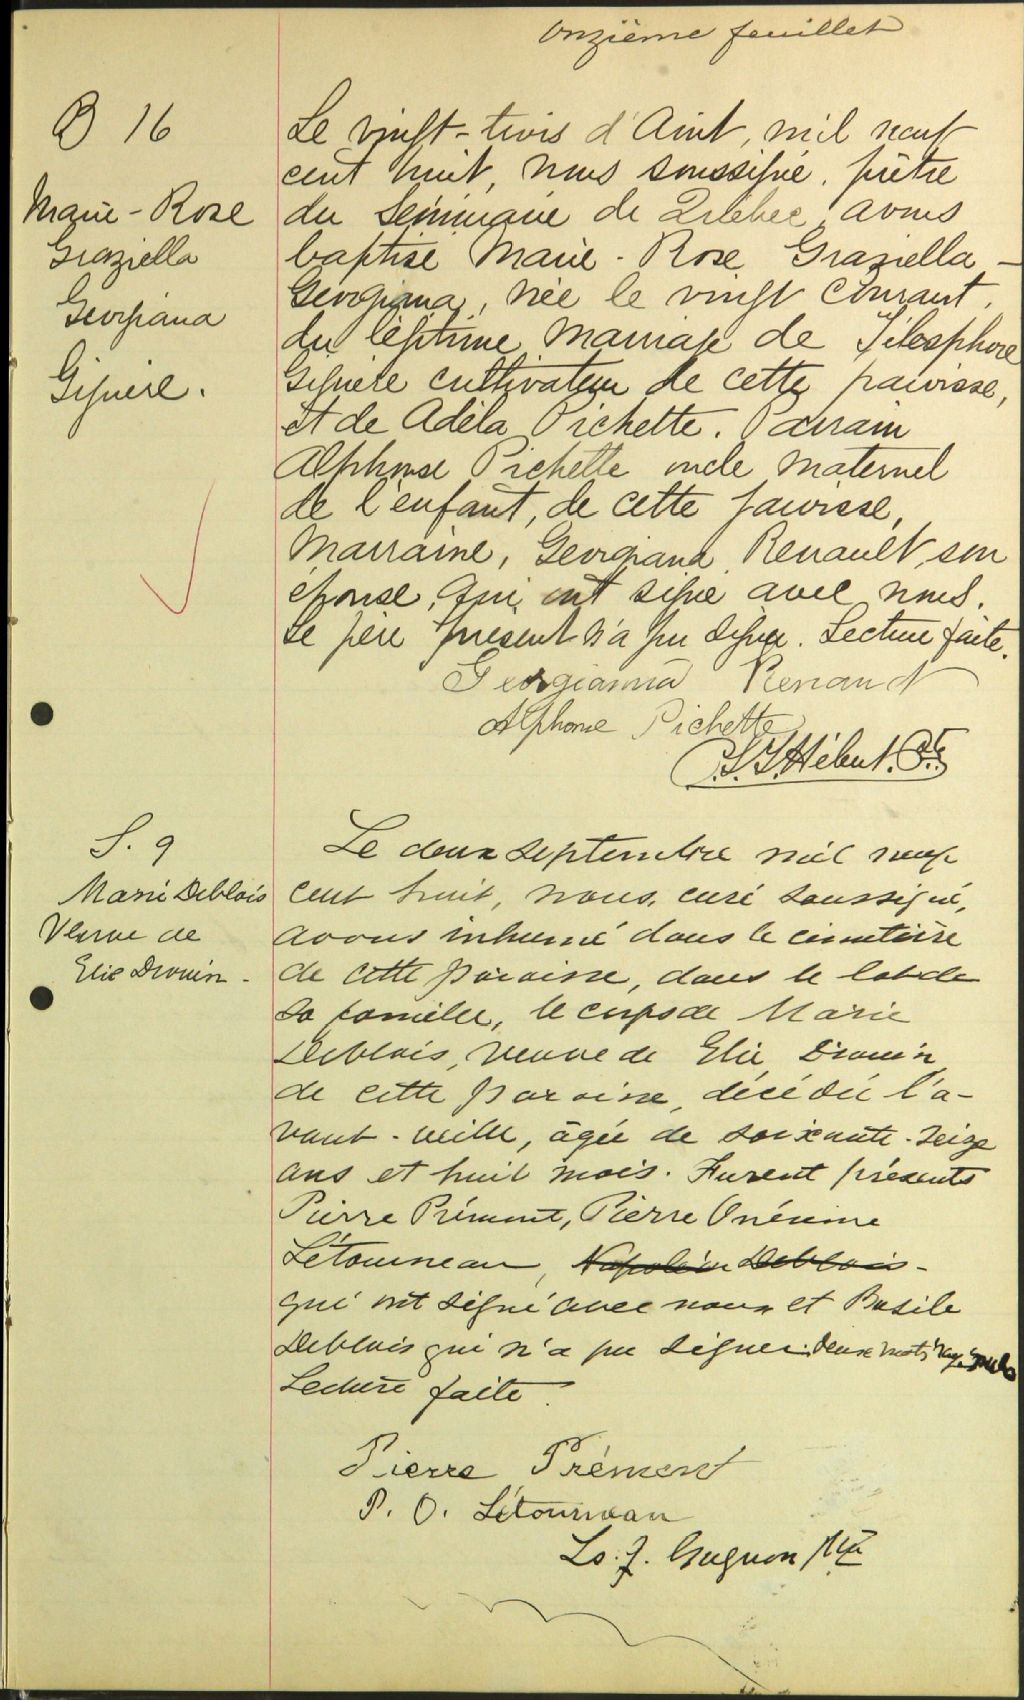 Onzième feuillet
B 16
Marie-Rose
Graziella
Georgiana
Giguère.
Le vingt-trois d'Août, mil neuf
cent huit, nous soussigné, prêtre
du Séminaire de Québec, avons
baptisé Marie-Rose Graziella -
Georgiana, née le vingt courant,
du légitime mariage de Télesphore
Giguère cultivateur de cette paroisse,
et de Adéla Pichette. Parrain
Alphonse Pichette oncle maternel
de l'enfant, de cette paroisse,
Marraine, Georgiana Renault, son
épouse, qui ont signé avec nous.
Le père présent n'a pu signer. Lecture faite.
Georgianna Renaud
Alphonse Pichette
Hébert, Ptre
S. 9
Marie Deblois
Veuve de
Elie Drouin -
Le deux septembre mil neuf
cent huit, nous, curé soussigné,
avons inhumé dans le cimetière
de cette paroisse, dans le lot de
sa famille, le corps de Marie
Deblois, veuve de Elie Drouin,
de cette paroisse, décédée l'a-
vant-veille, âgée de soixante-seize
ans et huit mois. Furent présents
Pierre Prémont, Pierre Onésime
Létourneau, Napoléon Deblois -
qui ont signé avec nous et Basile
Deblois qui n'a pu signer. Deux mots rayés nuls
Lecture faite.
Pierre Prémont
P. O. Létourneau
Ls. J. Gagnon Ptre